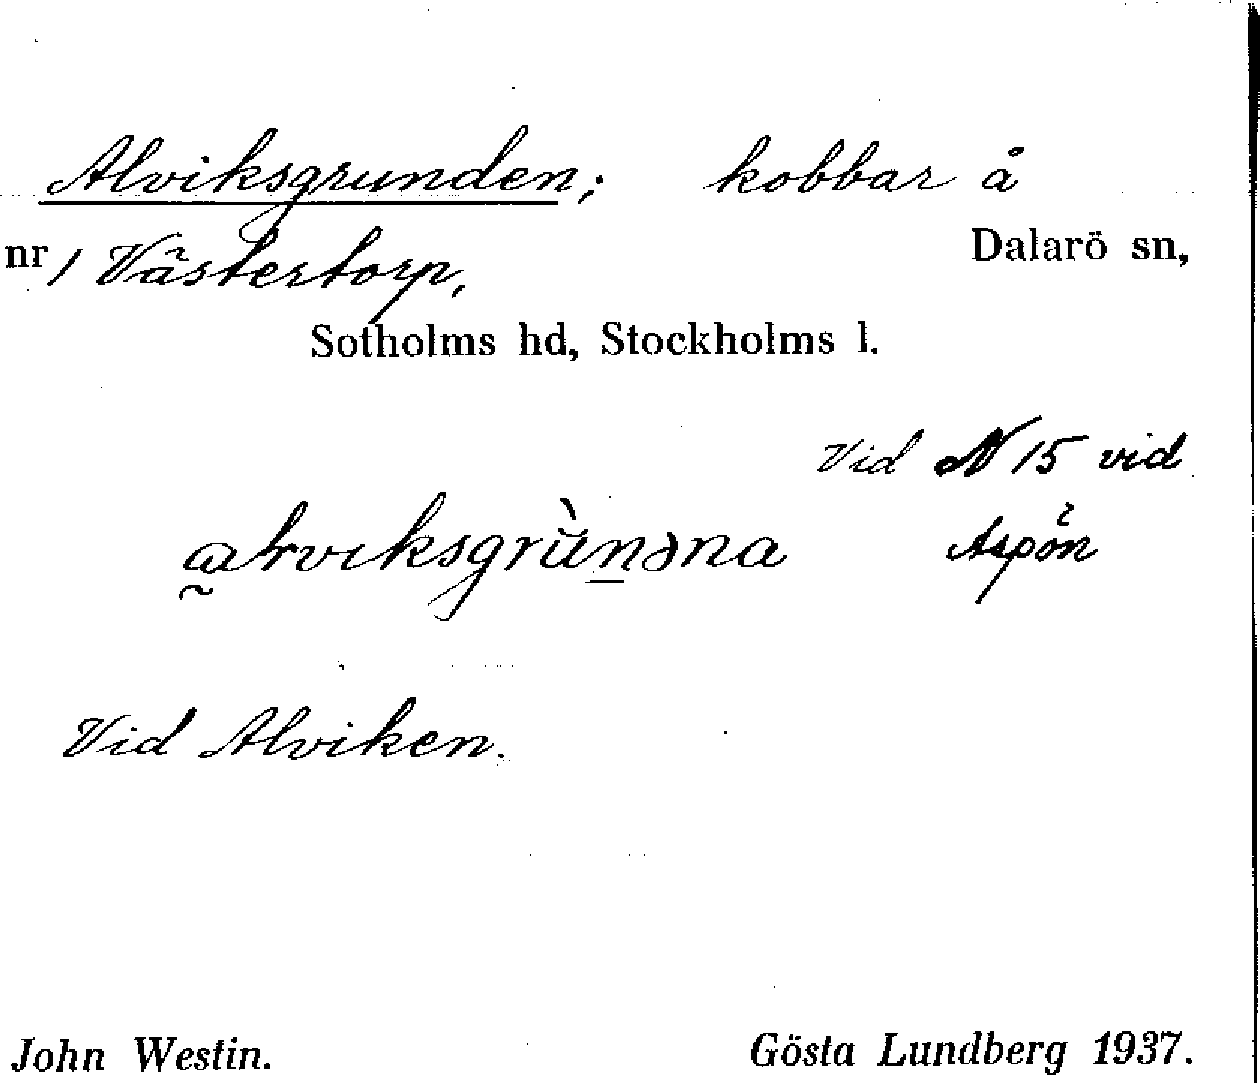 Alviksgrunden; kobbar å
nr 1 Västertorp, Dalarö sn,
Sotholms hd, Stockholms l.
Vid N 15 vid
Aspön
Vid Alviken.
John Westin. Gösta Lundberg 1937.